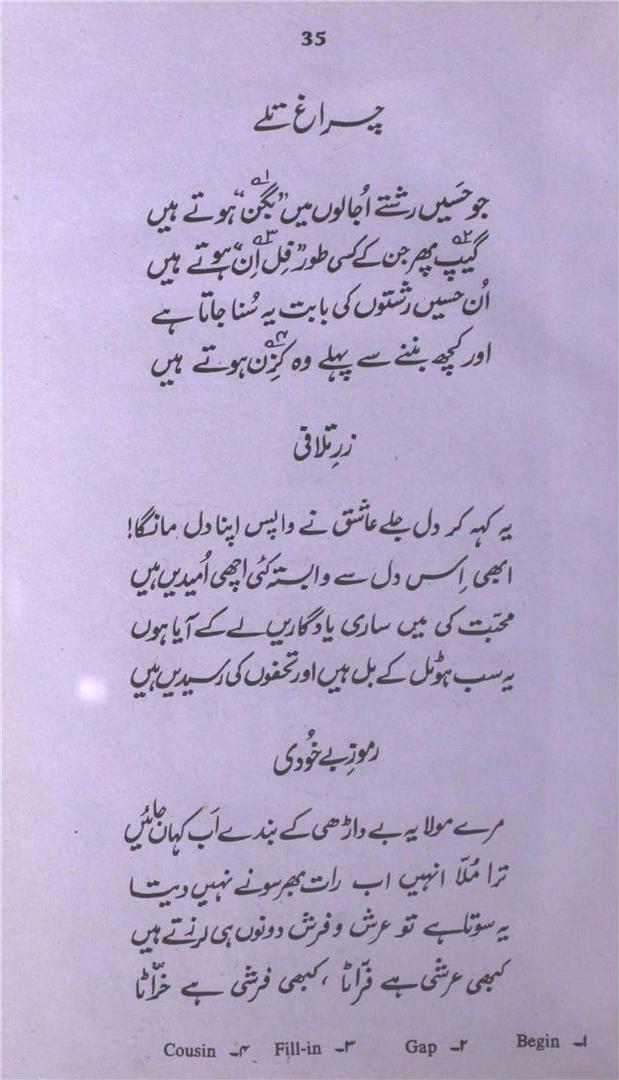 35
چراغ تلے
جو حَسیں رشتے اُجالوں میں ”بگِن“۱ ہوتے ہیں
گیپ۲ پھر جن کے کسی طور ”فِل اِن“۳ ہوتے ہیں
اُن حسیں رشتوں کی بابت یہ سُنا جاتا ہے
اور کچھ بننے سے پہلے وہ کزِن۴ ہوتے ہیں
زرِ تلافی
یہ کہہ کر دل جلے عاشق نے واپس اپنا دل مانگا!
ابھی اِس دل سے وابستہ کئی اچھی اُمیدیں ہیں
محبّت کی میں ساری یادگاریں لے کے آیا ہوں
یہ سب ہوٹل کے بل ہیں اور تحفوں کی رسیدیں ہیں
رموزِ بے خُودی
مرے مولا یہ بے داڑھی کے بندے اَب کہاں جائیں
ترا مُلّا انہیں اب رات بھر سونے نہیں دیتا
یہ سوتا ہے تو عرش و فرش دونوں ہی لرزتے ہیں
کبھی عرشی ہے فرّاٹا ، کبھی فرشی ہے خرّاٹا
۱۔ Begin ۲۔ Gap ۳۔ Fill-in ۴۔ Cousin